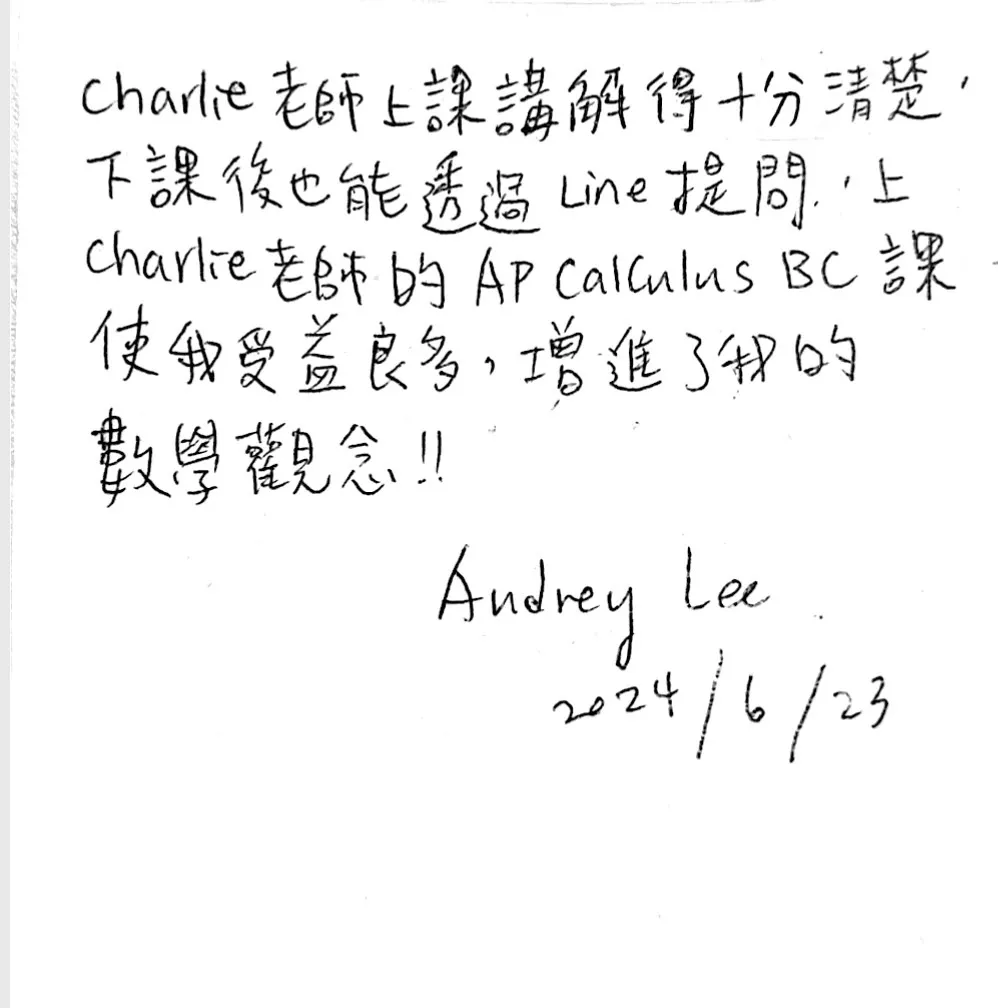 Charlie老師上課講解得十分清楚，
下課後也能透過Line提問，上
Charlie老師的AP Calculus BC課
使我受益良多，增進了我的
數學觀念!!
Audrey Lee
2024/6/23